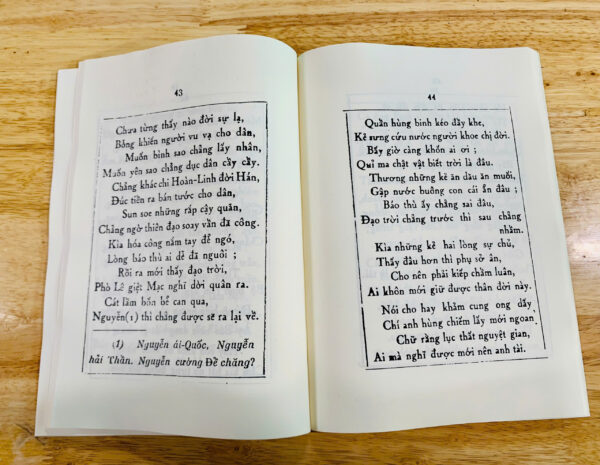 43
Chưa từng thấy nào đời sự lạ,
Bỗng khiến người vu vạ cho dân,
Muốn binh sao chẳng lấy nhân,
Muốn yên sao chẳng dục dân cầy cấy.
Chẳng khác chi Hoàn-Linh đời Hán,
Đúc tiền ra bán tước cho dân,
Sun soe những rắp cậy quân,
Chẳng ngờ thiên đạo soay vần đã công.
Kìa hóa công nắm tay dễ ngó,
Lòng báo thù ai dễ đã nguôi ;
Rồi ra mới thấy đạo trời,
Phò Lê giệt Mạc nghỉ dời quân ra.
Cát lầm bốn bề can qua,
Nguyễn(1) thì chẳng được sẽ ra lại về.
(1) Nguyễn ái-Quốc, Nguyễn
hải Thần. Nguyễn cường Đề chăng?
44
Quân hùng binh kéo đầy khe,
Kẻ sưng cứu nước người khoe chị đời.
Bấy giờ càng khốn ai ơi ;
Quỉ ma chật vật biết trời là đâu.
Thương những kẻ ăn dâu ăn muối,
Gặp nước buông con cái ẩn đâu ;
Báo thù ấy chẳng sai đâu,
Đạo trời chẳng trước thì sau chẳng
nhầm.
Kìa những kẻ hai lòng sự chủ,
Thấy đâu hơn thì phụ sở ân,
Cho nên phải kiếp chầm luân,
Ai khôn mới giữ được thân đời này.
Nói cho hay khảm cung ong dấy
Chí anh hùng chiếm lấy mới ngoan
Chữ rằng lục thất nguyệt gian,
Ai mà nghĩ được mới nên anh tài.